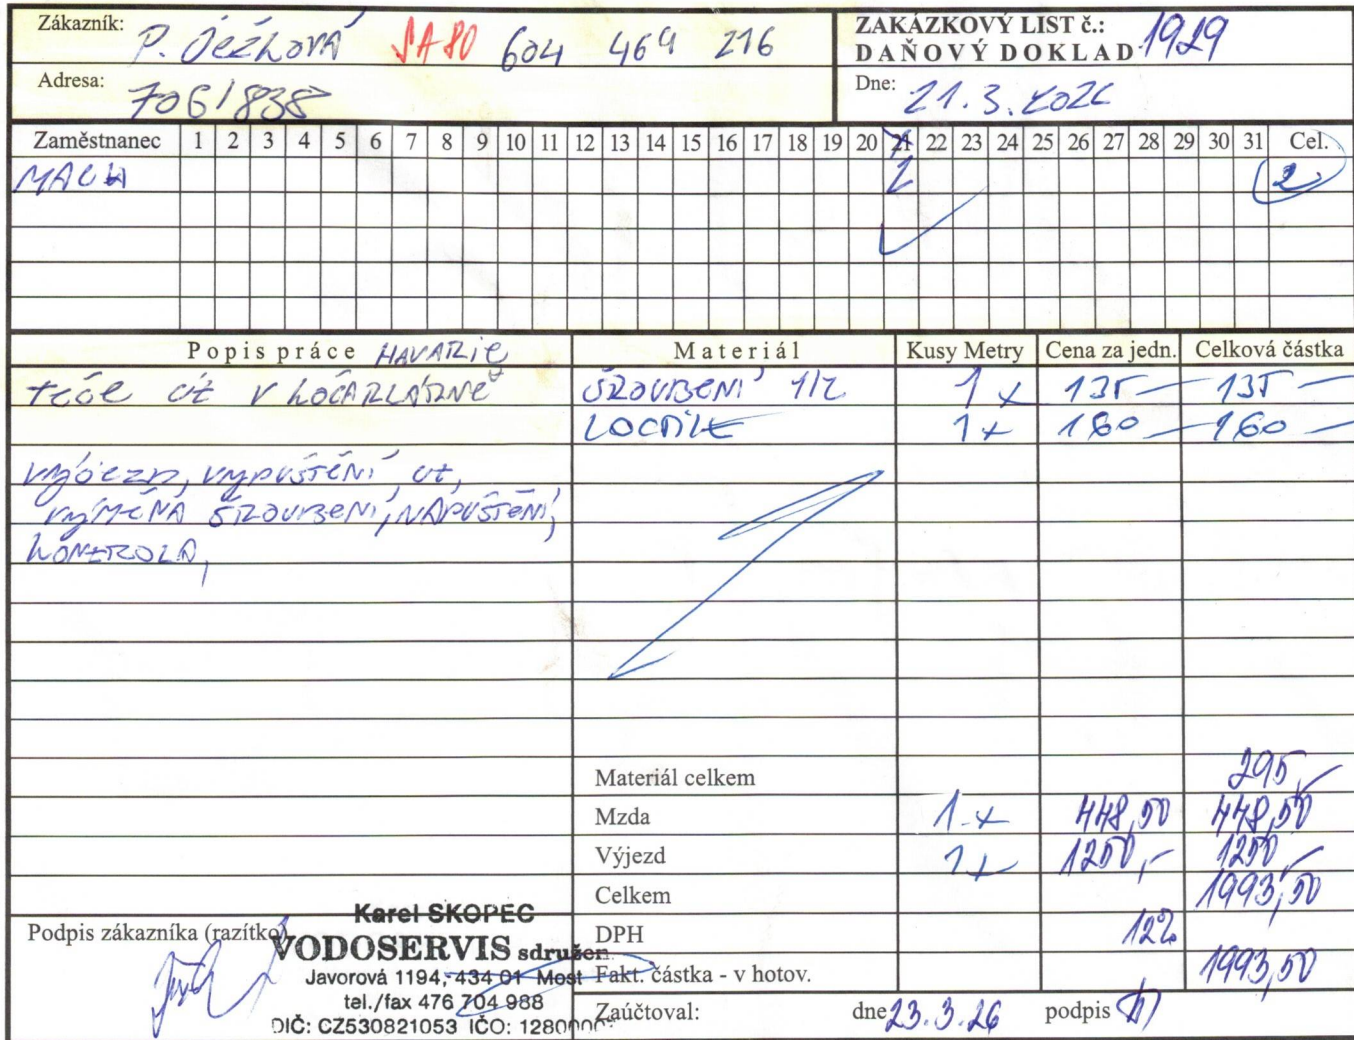 Zákazník: P. Ježková SA 80 604 469 216
ZAKÁZKOVÝ LIST č.: 1929
DAŇOVÝ DOKLAD
Adresa: 706/838
Dne: 21.3.2026
Zaměstnanec 1 2 3 4 5 6 7 8 9 10 11 12 13 14 15 16 17 18 19 20 21 22 23 24 25 26 27 28 29 30 31 Cel.
2 2
Popis práce HAVARIE Materiál Kusy Metry Cena za jedn. Celková částka
teče út v kočárkárně ŠROUBENÍ 1/2 1x 135 — 135 —
LOCTITE 1x 160 — 160 —
výjezd, vypuštění út,
výměna šroubení, napuštění,
kontrola,
Materiál celkem 295,-
Mzda 1x 448,50 448,50
Výjezd 1x 1250,- 1250,-
Celkem 1993,50
Podpis zákazníka (razítko)
Karel SKOPEC
VODOSERVIS sdružen
Javorová 1194, 434 01 Most
tel./fax 476 704 988
DIČ: CZ530821053 IČO: 1280
DPH 12%
Fakt. částka - v hotov. 1993,50
Zaúčtoval: dne 23.3.26 podpis